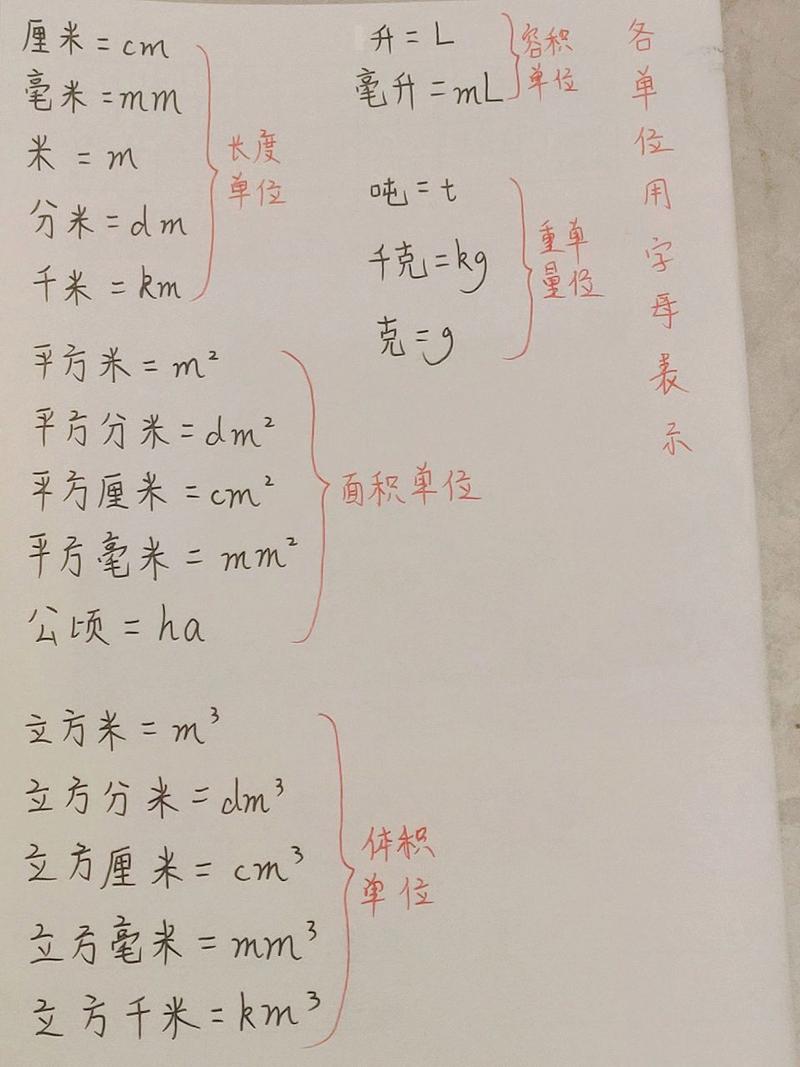 各单位用字母表示
厘米=cm
毫米=mm
米=m
分米=dm
千米=km
长度
单位
平方米=m²
平方分米=dm²
平方厘米=cm²
平方毫米=mm²
公顷=ha
面积单位
立方米=m³
立方分米=dm³
立方厘米=cm³
立方毫米=mm³
立方千米=km³
体积
单位
升=L
毫升=mL
容积
单位
吨=t
千克=kg
克=g
重单
量位